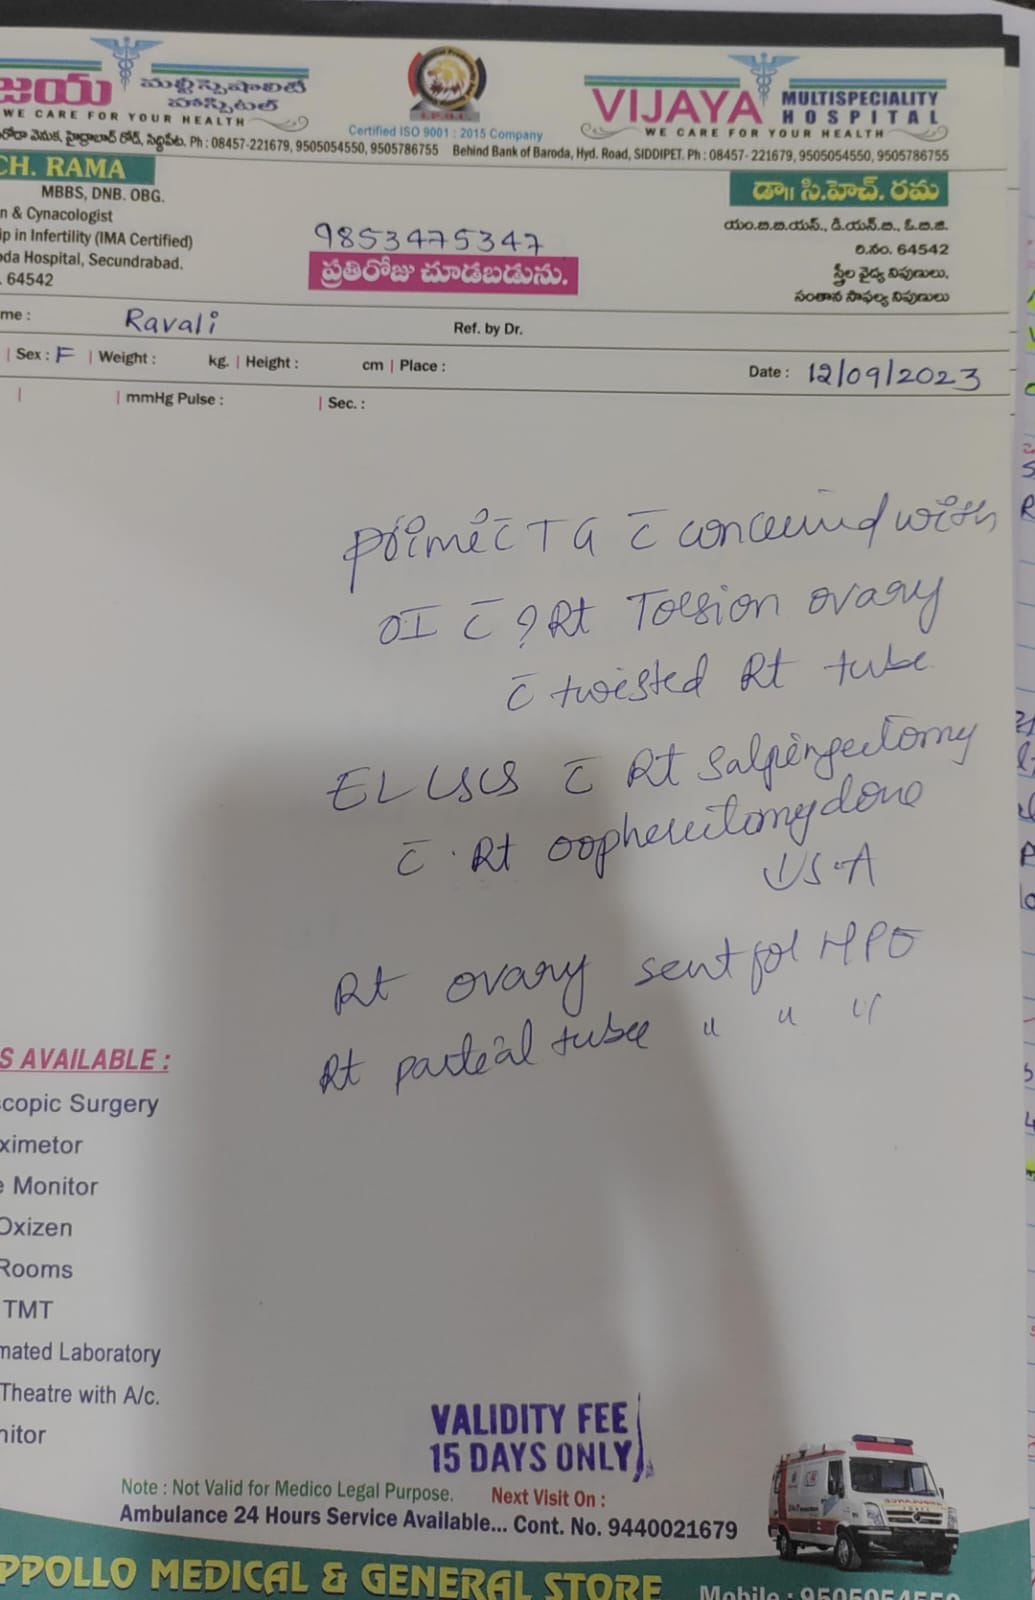 జయ మల్టీస్పెషాలిటీ హాస్పిటల్
WE CARE FOR YOUR HEALTH
బరోడా వెనుక, హైద్రాబాద్ రోడ్, సిద్దిపేట. Ph : 08457-221679, 9505054550, 9505786755
Certified ISO 9001 : 2015 Company
VIJAYA MULTISPECIALITY HOSPITAL
WE CARE FOR YOUR HEALTH
Behind Bank of Baroda, Hyd. Road, SIDDIPET. Ph : 08457- 221679, 9505054550, 9505786755
CH. RAMA
MBBS, DNB. OBG.
n & Cynacologist
ip in Infertility (IMA Certified)
oda Hospital, Secundrabad.
. 64542
9853475347
ప్రతిరోజు చూడబడును.
డా॥ సి.హెచ్. రమ
యం.బి.బి.యస్., డి.యన్.బి., ఓ.బి.జి.
రి.నం. 64542
స్త్రీల వైద్య నిపుణులు,
సంతాన సాఫల్య నిపుణులు
me : Ravali Ref. by Dr.
| Sex : F | Weight : kg. | Height : cm | Place : Date : 12/09/2023
| | mmHg Pulse : | Sec. :
Primi c̄ TG c̄ conceived with
OI c̄ ? Rt Torsion ovary
c̄ twisted Rt tube
EL LSCS c̄ Rt Salpingectomy
c̄ . Rt oopherectomy done
U.S.A
Rt ovary sent for HPE
Rt partial tube " " "
S AVAILABLE :
scopic Surgery
ximetor
e Monitor
Oxizen
Rooms
TMT
mated Laboratory
Theatre with A/c.
nitor
VALIDITY FEE
15 DAYS ONLY
Note : Not Valid for Medico Legal Purpose. Next Visit On :
Ambulance 24 Hours Service Available... Cont. No. 9440021679
PPOLLO MEDICAL & GENERAL STORE Mobile : 9505054550